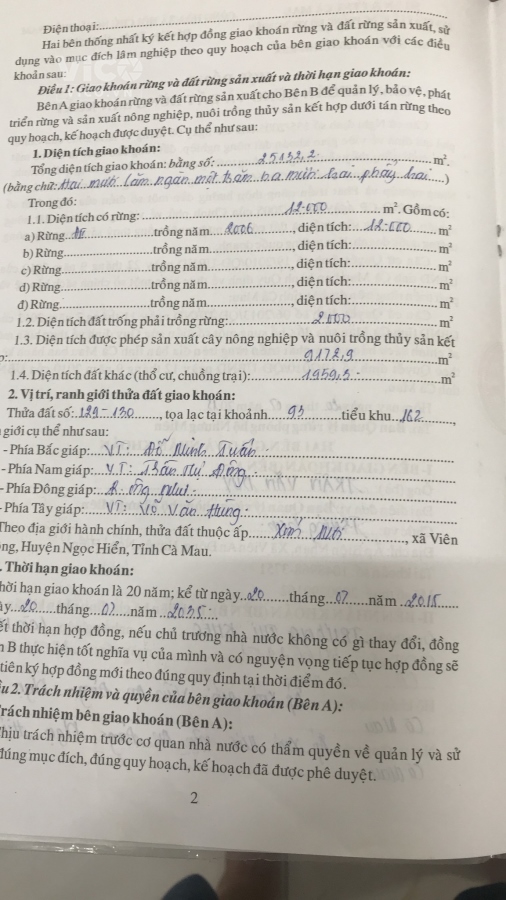 Điện thoại:
Hai bên thống nhất ký kết hợp đồng giao khoán rừng và đất rừng sản xuất, sử
dụng vào mục đích lâm nghiệp theo quy hoạch của bên giao khoán với các điều
khoản sau:
Điều 1: Giao khoán rừng và đất rừng sản xuất và thời hạn giao khoán:
Bên A giao khoán rừng và đất rừng sản xuất cho Bên B để quản lý, bảo vệ, phát
triển rừng và sản xuất nông nghiệp, nuôi trồng thủy sản kết hợp dưới tán rừng theo
quy hoạch, kế hoạch được duyệt. Cụ thể như sau:
1. Diện tích giao khoán:
Tổng diện tích giao khoán: bằng số: 25132,2 m².
(bằng chữ: Hai mươi lăm ngàn một trăm ba mươi hai phẩy hai)
Trong đó:
1.1. Diện tích có rừng: 12.000 m². Gồm có:
a) Rừng trồng năm 2006, diện tích: 12.000 m²
b) Rừng trồng năm, diện tích: m²
c) Rừng trồng năm, diện tích: m²
d) Rừng trồng năm, diện tích: m²
đ) Rừng trồng năm, diện tích: m²
1.2. Diện tích đất trống phải trồng rừng: 2000 m²
1.3. Diện tích được phép sản xuất cây nông nghiệp và nuôi trồng thủy sản kết
9172,9 m²
1.4. Diện tích đất khác (thổ cư, chuồng trại): 1959,3 m²
2. Vị trí, ranh giới thửa đất giao khoán:
Thửa đất số: 129-130, tọa lạc tại khoảnh 93 tiểu khu 162,
giới cụ thể như sau:
- Phía Bắc giáp: VT: Đỗ Minh Tuấn
- Phía Nam giáp: VT: Trần Đông
- Phía Đông giáp:
- Phía Tây giáp: VT: Võ Văn Hùng
Theo địa giới hành chính, thửa đất thuộc ấp, xã Viên
ng, Huyện Ngọc Hiển, Tỉnh Cà Mau.
. Thời hạn giao khoán:
hời hạn giao khoán là 20 năm; kể từ ngày 20 tháng 07 năm 2015
ày 20 tháng 07 năm 2035
ết thời hạn hợp đồng, nếu chủ trương nhà nước không có gì thay đổi, đồng
n B thực hiện tốt nghĩa vụ của mình và có nguyện vọng tiếp tục hợp đồng sẽ
tiên ký hợp đồng mới theo đúng quy định tại thời điểm đó.
u 2. Trách nhiệm và quyền của bên giao khoán (Bên A):
Trách nhiệm bên giao khoán (Bên A):
Chịu trách nhiệm trước cơ quan nhà nước có thẩm quyền về quản lý và sử
đúng mục đích, đúng quy hoạch, kế hoạch đã được phê duyệt.
2